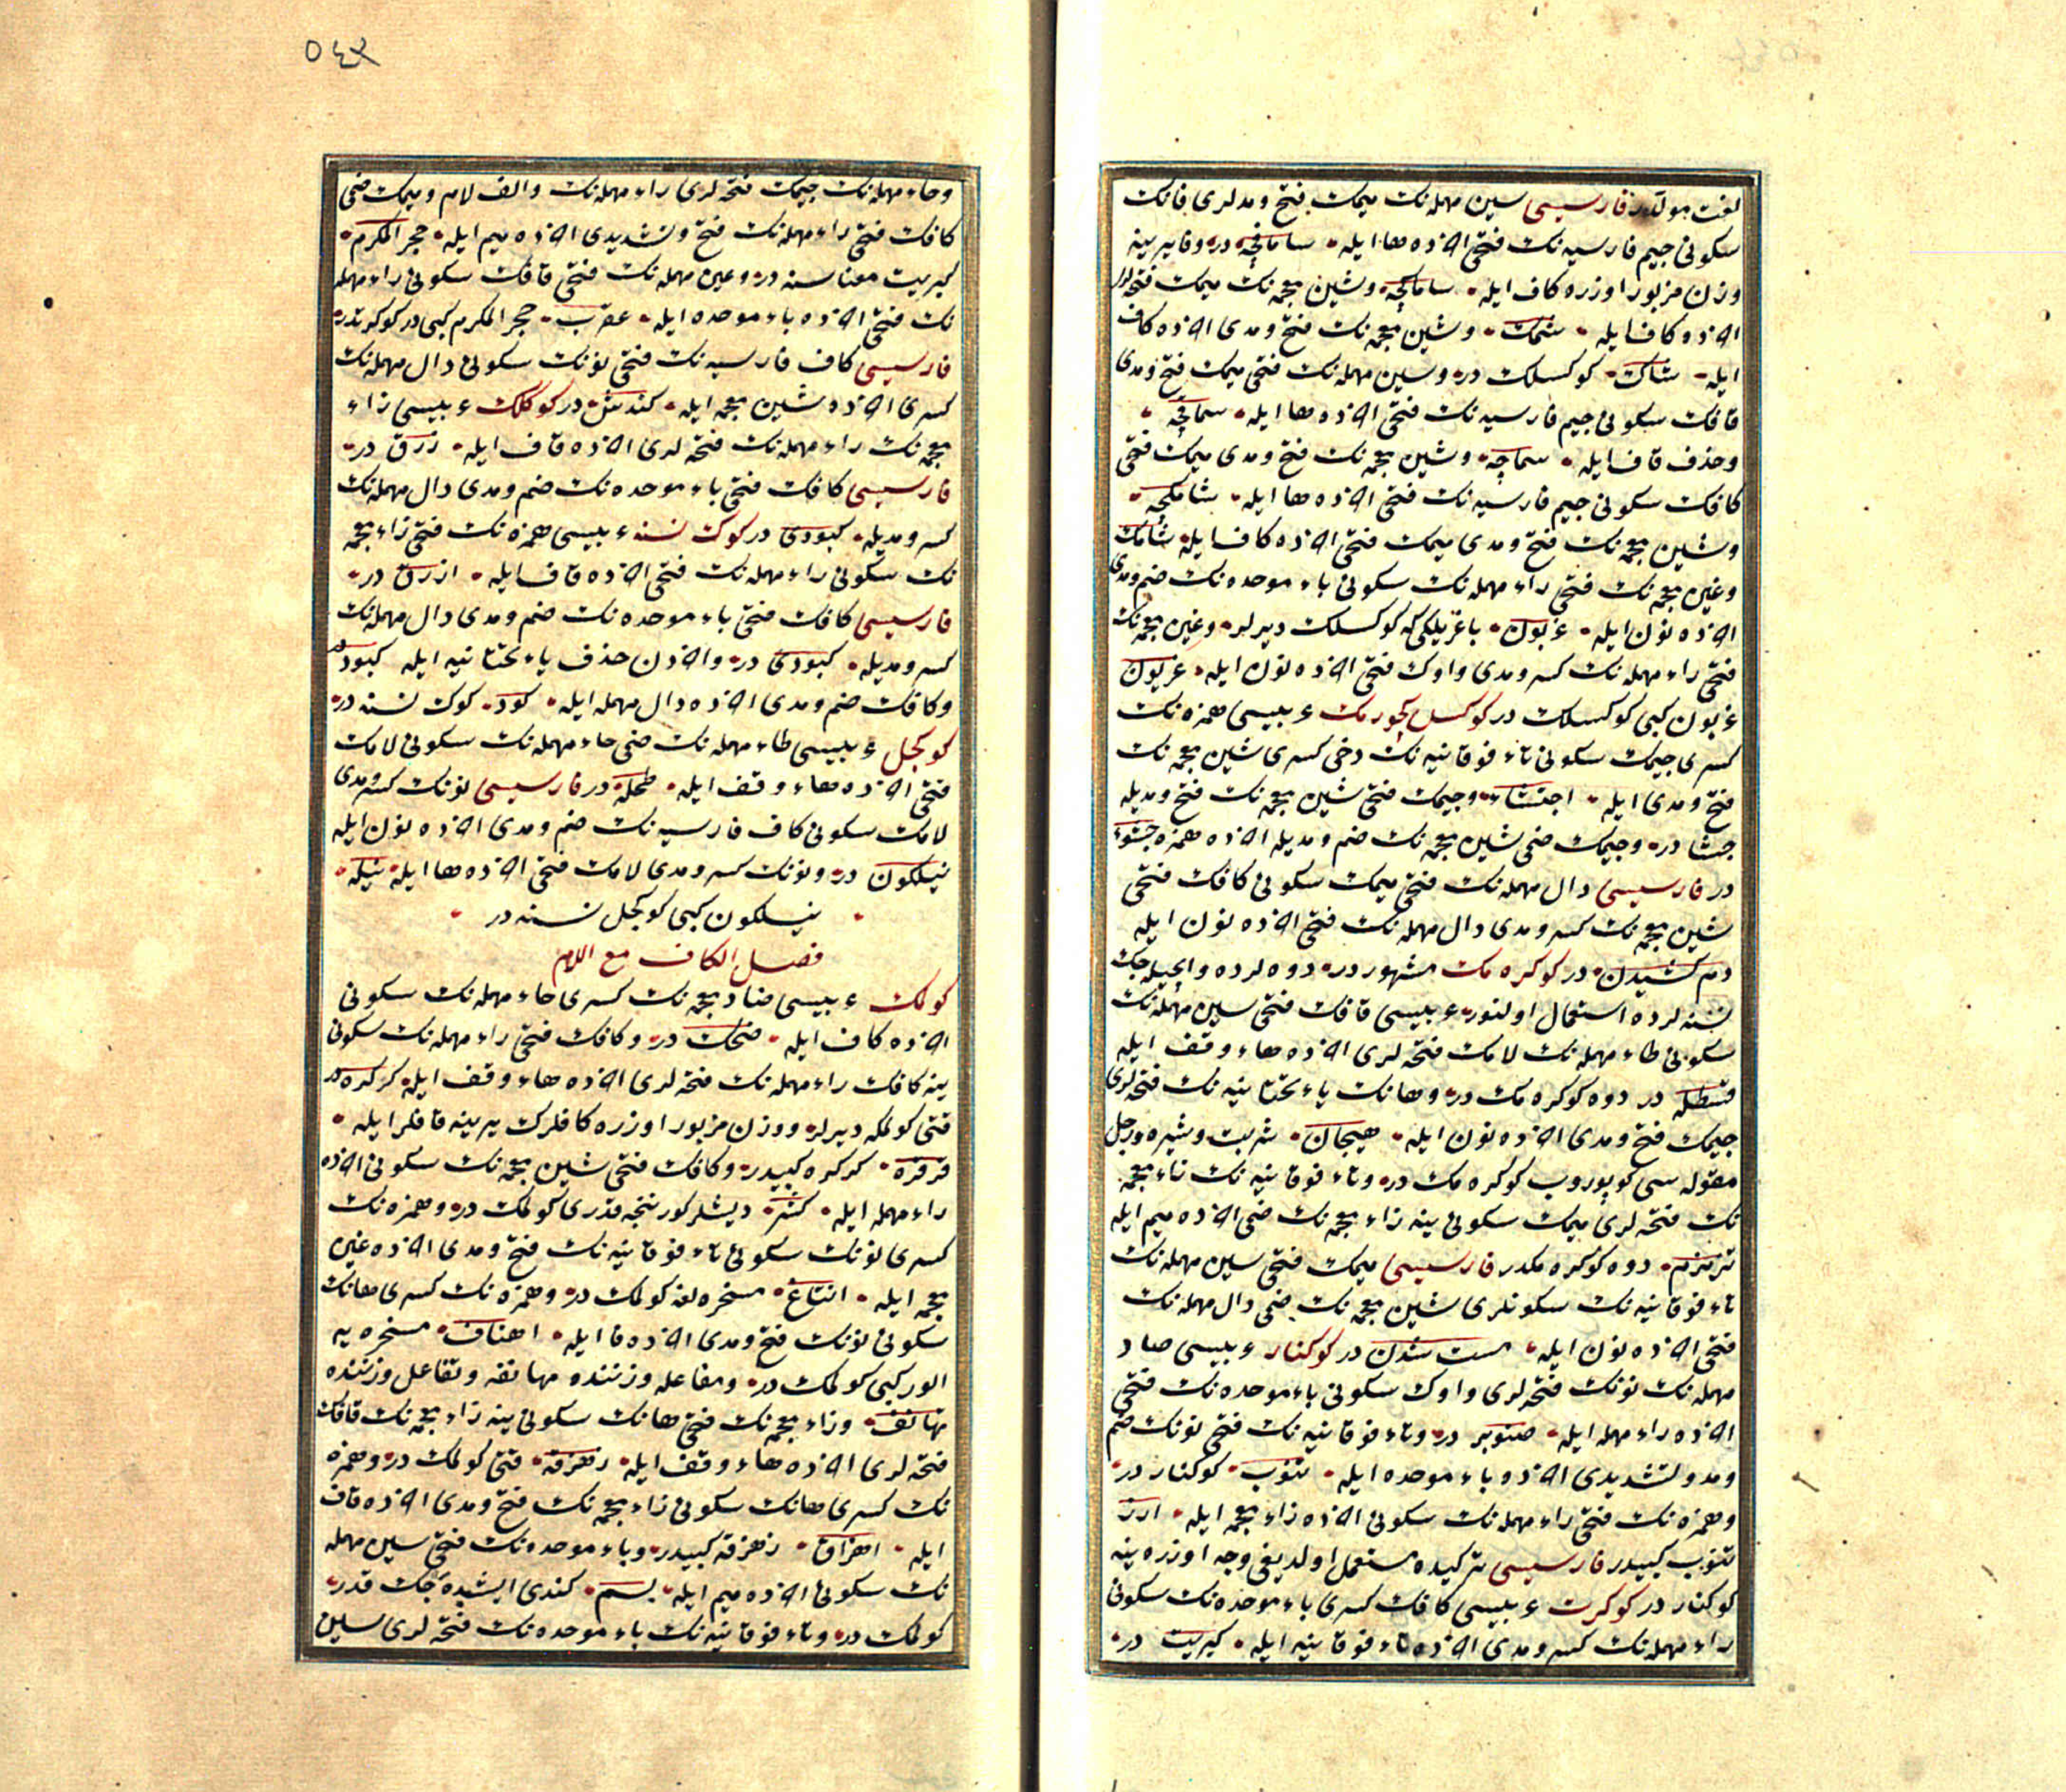 لغت مولّددر فارسیسی سین مهمله‌نك میمك فتح و مدلری فانك
سکونی جیم فارسیه‌نك فتحی اخرده ها ایله سامافچه در و فا یرینه
وزن مزبور اوزره کاف ایله سامکچه و شین معجمه‌نك میمك فتحه‌لری
اخرده کاف ایله شمك و شین معجمه‌نك فتح و مدی اخرده کاف
ایله شاك کوکسلك در و سین مهمله‌نك فتحی میمك فتح و مدی
قافك سکونی جیم فارسیه‌نك فتحی اخرده ها ایله سماقچه
و حذف قاف ایله سماچه و شین معجمه‌نك فتح و مدی میمك فتحی
کافك سکونی جیم فارسیه‌نك فتحی اخرده ها ایله شامکچه
و شین معجمه‌نك فتح و مدی میمك فتحی اخرده کاف ایله شامك
و غین معجمه‌نك فتحی راء مهمله‌نك سکونی باء موحده‌نك ضم و مدی
اخرده نون ایله غربون باغریلکی که کوکسلك دیرلر و غین معجمه‌نك
فتحی راء مهمله‌نك کسر و مدی واوك فتحی اخرده نون ایله غریون
غربون کبی کوکسلك در کوکسل کچورمك عربیسی همزه‌نك
کسری جیمك سکونی تاء فوقانیه‌نك دخی کسری شین معجمه‌نك
فتح و مدی ایله اجتشاء و جیمك فتحی شین معجمه‌نك فتح و مدیله
جشا در و جیمك ضمی شین معجمه‌نك ضم و مدیله اخرده همزه جشوء
در فارسیسی دال مهمله‌نك فتحی میمك سکونی کافك فتحی
شین معجمه‌نك کسر و مدی دال مهمله‌نك فتحی اخرده نون ایله
دم کشیدن در کوکره‌مك مشهوردر دوه‌لرده و
نسنه‌لرده استعمال اولنور عربیسی قافك فتحی سین مهمله‌نك
سکونی طاء مهمله‌نك لامك فتحه‌لری اخرده هاء وقف ایله
قسطله در دوه کوکره‌مك در و هانك یاء تحتانیه‌نك فتحه‌لری
جیمك فتح و مدی اخرده نون ایله هیجان شربت و شیره و رجل
مقوله‌سی کوپوروب کوکره‌مك در و تاء فوقانیه‌نك زاء معجمه
نك فتحه‌لری میمك سکونی ینه زاء معجمه‌نك ضمی اخرده میم ایله
تزمزم دوه کوکره‌مکدر فارسیسی میمك فتحی سین مهمله‌نك
تاء فوقانیه‌نك سکونلری شین معجمه‌نك ضمی دال مهمله‌نك
فتحی اخرده نون ایله مست شدن در کوکنار عربیسی صاد
مهمله‌نك نونك فتحه‌لری واوك سکونی باء موحده‌نك فتحی
اخرده راء مهمله ایله صنوبر در و تاء فوقانیه‌نك فتحی نونك ضم
و مد و تشدیدی اخرده باء موحده ایله تنوب کوکنار در
و همزه‌نك فتحی راء مهمله‌نك سکونی اخرده زاء معجمه ایله ارز
تنوب کبیدر فارسیسی ترکیده مستعمل اولدیغی وجه اوزره ینه
کوکنار در کوکرت عربیسی کافك کسری باء موحده‌نك سکونی
راء مهمله‌نك کسر و مدی اخرده تاء فوقانیه ایله کبریت در
٥٤٢
و حاء مهمله‌نك جیمك فتحه‌لری راء مهمله‌نك و الف لام و میمك ضمی
کافك فتحی راء مهمله‌نك فتح و تشدیدی اخرده میم ایله حجر المکرم
کبریت معناسنه در و عین مهمله‌نك فتحی قافك سکونی راء مهمله
نك فتحی اخرده باء موحده ایله عقرب حجر المکرم کبی در کوکرتدر
فارسیسی کاف فارسیه‌نك فتحی نونك سکونی دال مهمله‌نك
کسری اخرده شین معجمه ایله کندش در کوکلك عربیسی زاء
معجمه‌نك راء مهمله‌نك فتحه‌لری اخرده قاف ایله زرق در
فارسیسی کافك فتحی باء موحده‌نك ضم و مدی دال مهمله‌نك
کسر و مدیله کبودی در کوك نسنه عربیسی همزه‌نك فتحی زاء معجمه
نك سکونی راء مهمله‌نك فتحی اخرده قاف ایله ازرق در
فارسیسی کافك فتحی باء موحده‌نك ضم و مدی دال مهمله‌نك
کسر و مدیله کبودی در و اخردن حذف یاء تحتانیه ایله کبود در
و کافك ضم و مدی اخرده دال مهمله ایله کود کوك نسنه در
کوکجل عربیسی طاء مهمله‌نك ضمی حاء مهمله‌نك سکونی لامك
فتحی اخرده هاء وقف ایله طحله در فارسیسی نونك کسر و مدی
لامك سکونی کاف فارسیه‌نك ضم و مدی اخرده نون ایله
نیلکون در و نونك کسر و مدی لامك فتحی اخرده ها ایله نیله
نیلکون کبی کوکجل نسنه در
فصل الکاف مع اللام
کولمك عربیسی ضاد معجمه‌نك کسری حاء مهمله‌نك سکونی
اخرده کاف ایله ضحك در و کافك فتحی راء مهمله‌نك سکونی
ینه کافك راء مهمله‌نك فتحه‌لری اخرده هاء وقف ایله کرکره در
قتی کولمکه دیرلر و وزن مزبور اوزره کافلرك یرینه قافلر ایله
قرقره کرکره کبیدر و کافك فتحی شین معجمه‌نك سکونی اخرده
راء مهمله ایله کشر دیشلر کورننجه قدری کولمك در و همزه‌نك
کسری نونك سکونی تاء فوقانیه‌نك فتح و مدی اخرده غین
معجمه ایله انتاغ مسخره‌لغه کولمك در و همزه‌نك کسری هانك
سکونی نونك فتح و مدی اخرده فا ایله اهناف مسخره‌یه
الور کبی کولمك در و مفاعله وزننده مهانفه و تفاعل وزننده
تهانف و زاء معجمه‌نك فتحی هانك سکونی ینه زاء معجمه‌نك قافك
فتحه‌لری اخرده هاء وقف ایله زهزقه قتی کولمك در و همزه
نك کسری هانك سکونی زاء معجمه‌نك فتح و مدی اخرده قاف
ایله اهزاق زهزقه کبیدر و باء موحده‌نك فتحی سین مهمله
نك سکونی اخرده میم ایله بسم کندی ایشیده‌جك قدر
کولمك در و تاء فوقانیه‌نك باء موحده‌نك فتحه‌لری سین